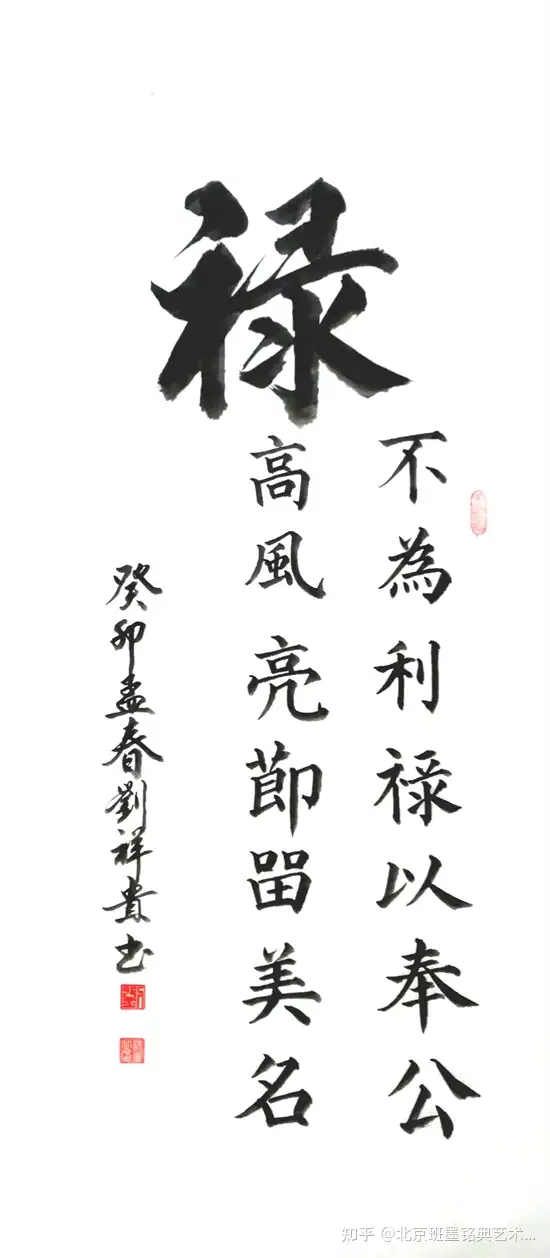 禄
不為利禄以奉公
高風亮節留美名
癸卯孟春劉祥貴书
知乎 @北京班墨铭典艺术...